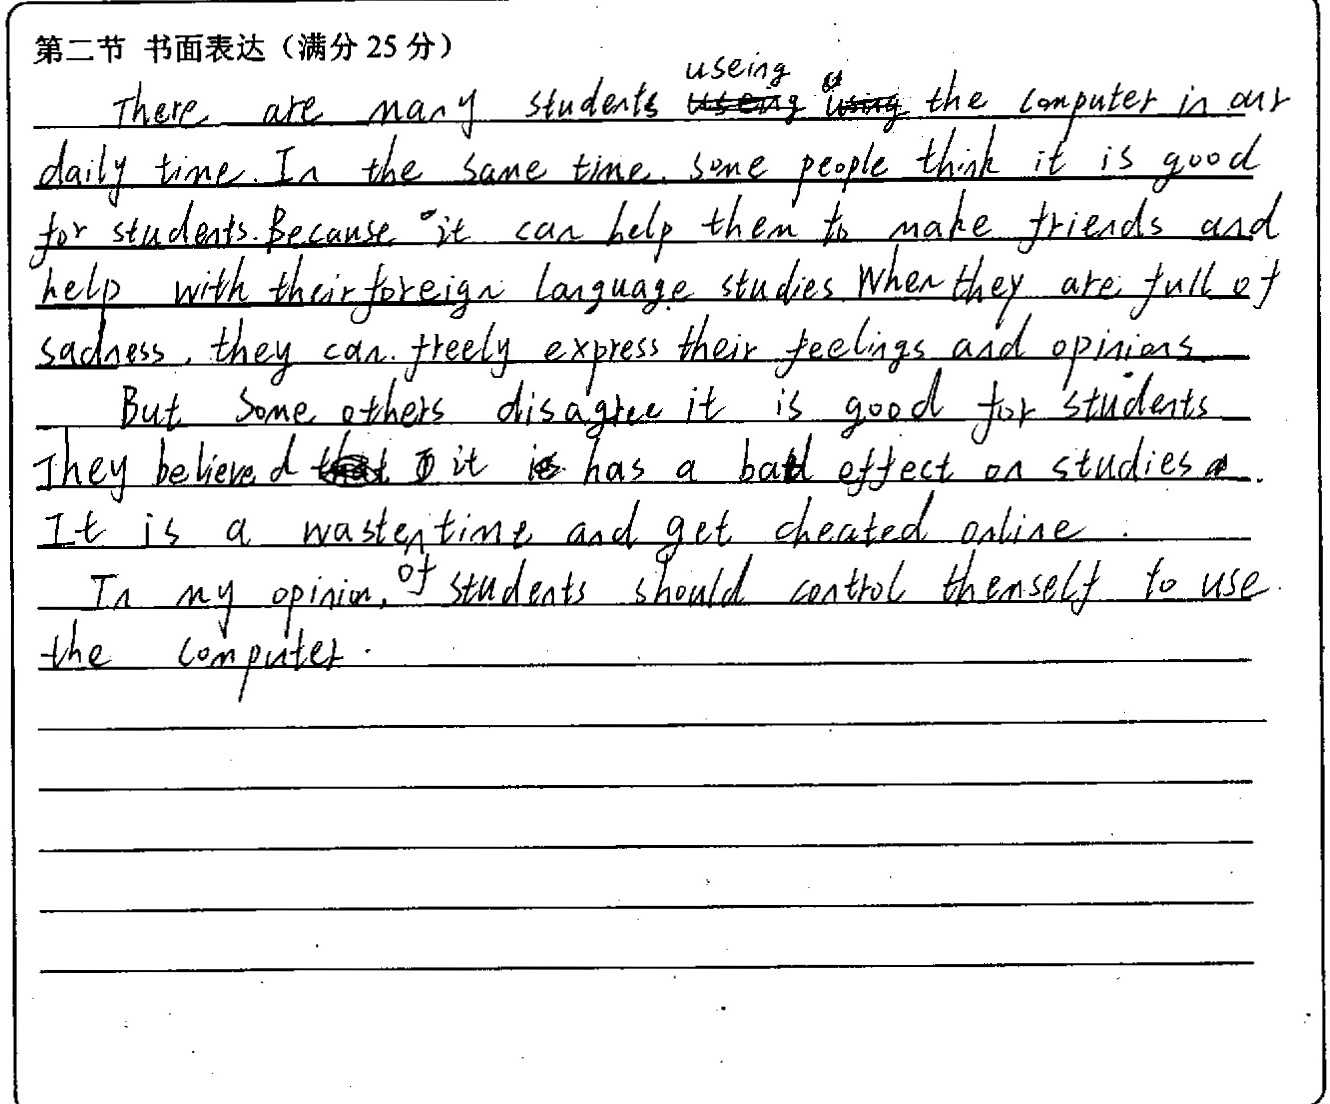 第二节 书面表达（满分 25 分）
There are many students useing the computer in our
daily time. In the same time. some people think it is good
for students. Because it can help them to make friends and
help with their foreign language studies. When they are full of
sadness, they can freely express their feelings and opinions.
But some others disagree it is good for students
They believed it has a bad effect on studies.
It is a waste of time and get cheated online.
In my opinion, students should control themself to use
the computer.